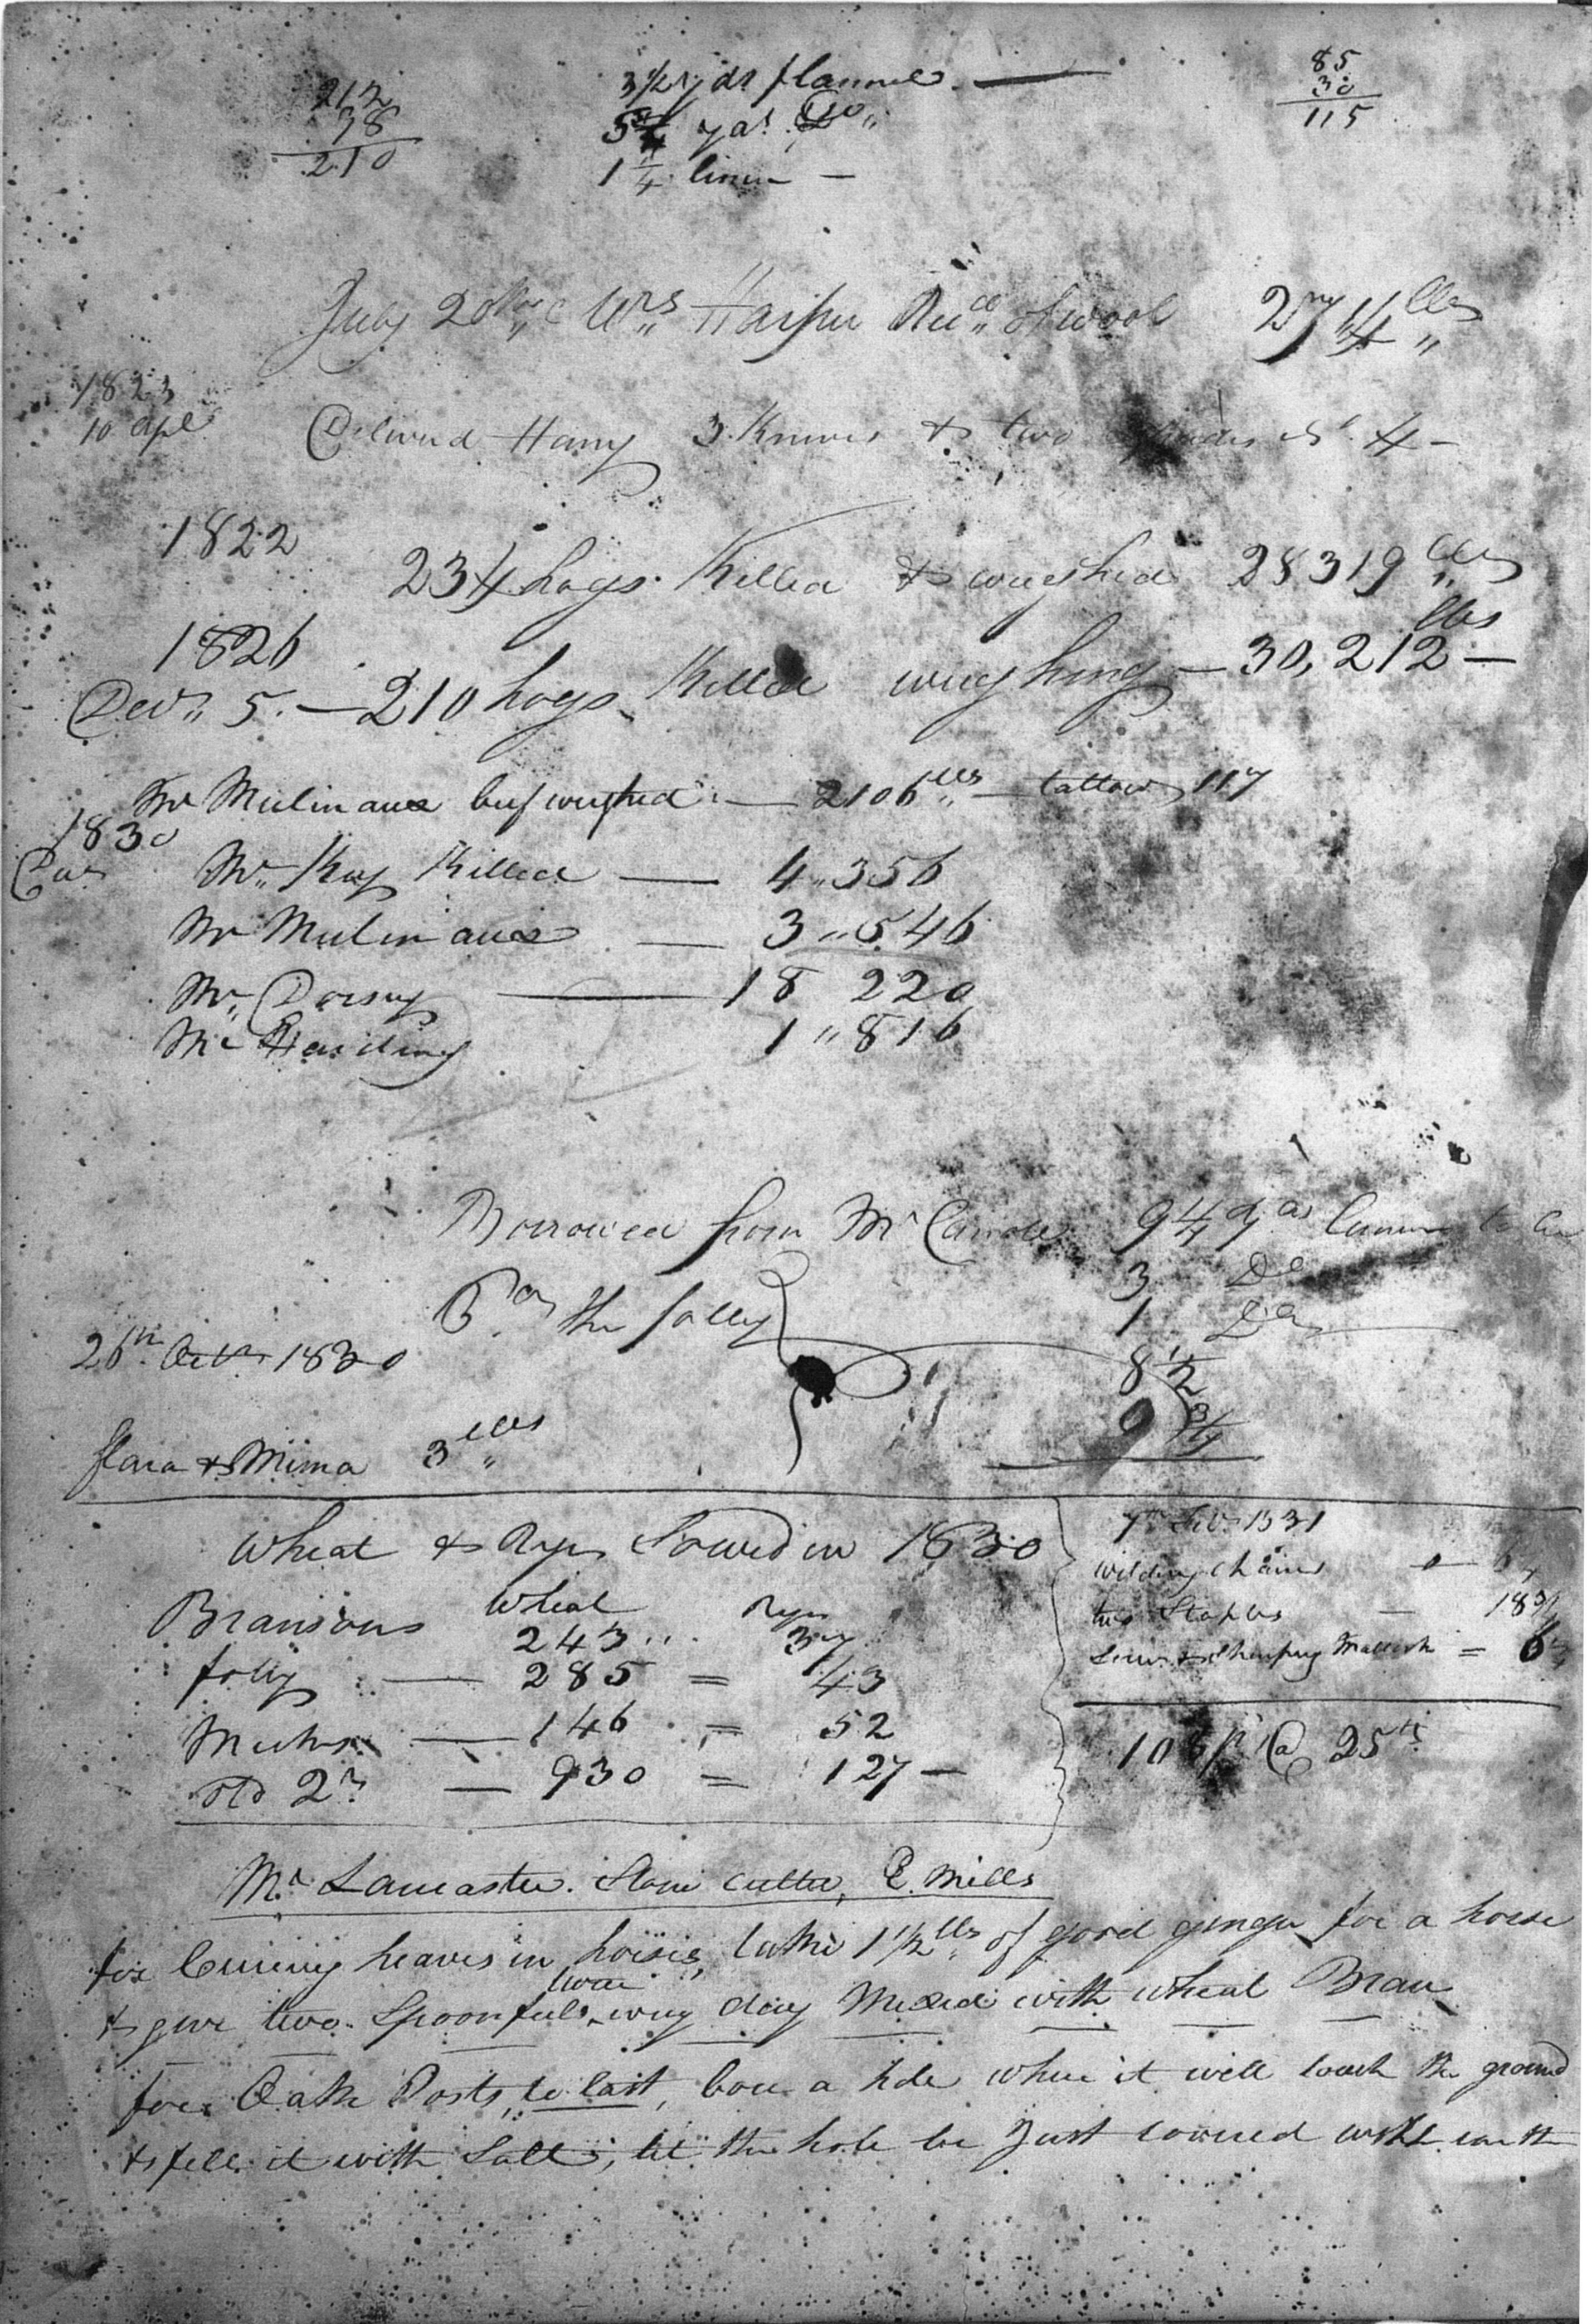 212
38
210
3 1/2 yds flannel —
5 yds Do
1 1/4 linen —
85
30
115
July 20 Mrs Harper Recd of wool 27 1/4 lbs
1823
10 Apl Deliverd Harry 3 Knives & two 4 —
1822
234 hogs Killed & weighed 28319 lbs
1826
Decr 5. — 210 hogs Killed weighing — 30,212 lbs —
Mr Mulinaux beef weighed — 2106 lbs — tallow 117
1830
Mr Kay Killed — 4,, 356
Mr Mulinaux — 3,, 546
Mr Dorsey — 18 220
Mr Harding 1,, 816
Borrowed from Mr 94
3 Do
1 Do
8 1/2
9 3/4
the folly
26th Octr 1830
flara & Mima 3 lbs
Wheat & Rye Sowed in 1830
Wheat Rye
Bransons 243 37
folly — 285 = 43
— 146 = 52
Old 2r — 930 = 127 —
7th Feby 1831
chains
two Staples — 18 3/4
Mattock =
108 pr @ 25 cts
Mr. Lancaster. Stone Cutter, E. Mills
for Cureing heaves in horses, take 1 1/2 lbs of good ginger for a horse
& give two Spoonfuls every day Mixed with wheat Bran
for Oake Posts, to last, bore a hole where it will touch the ground
& fill it with Salt, let the hole be Just covered with earth